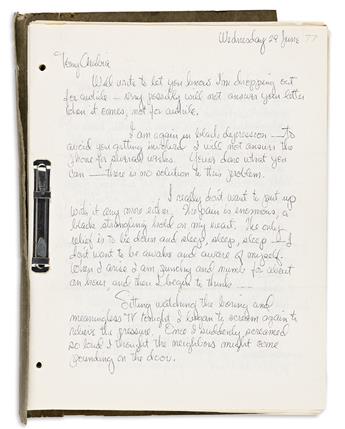 Wednesday 29 June 77
Will write to let you know I'm dropping out
for awhile — Very possibly will not answer your letter
when it comes, not for awhile.
I am again in black depression — To
avoid you getting involved I will not answer the
phone for several weeks. You've done what you
can — there is no solution to this problem.
I really don't want to put up
with it any more either. The pain is enormous, a
black strangling hold on my heart. The only
relief is to lie down and sleep, sleep, sleep — I
don't want to be awake and aware of myself.
When I arise I am and numb for about
an hour and then I begin to think —
Sitting watching the boring and
meaningless TV tonight I began to scream again to
relieve the pressure. Once I suddenly screamed
so loud I thought the neighbors might come
pounding on the door.